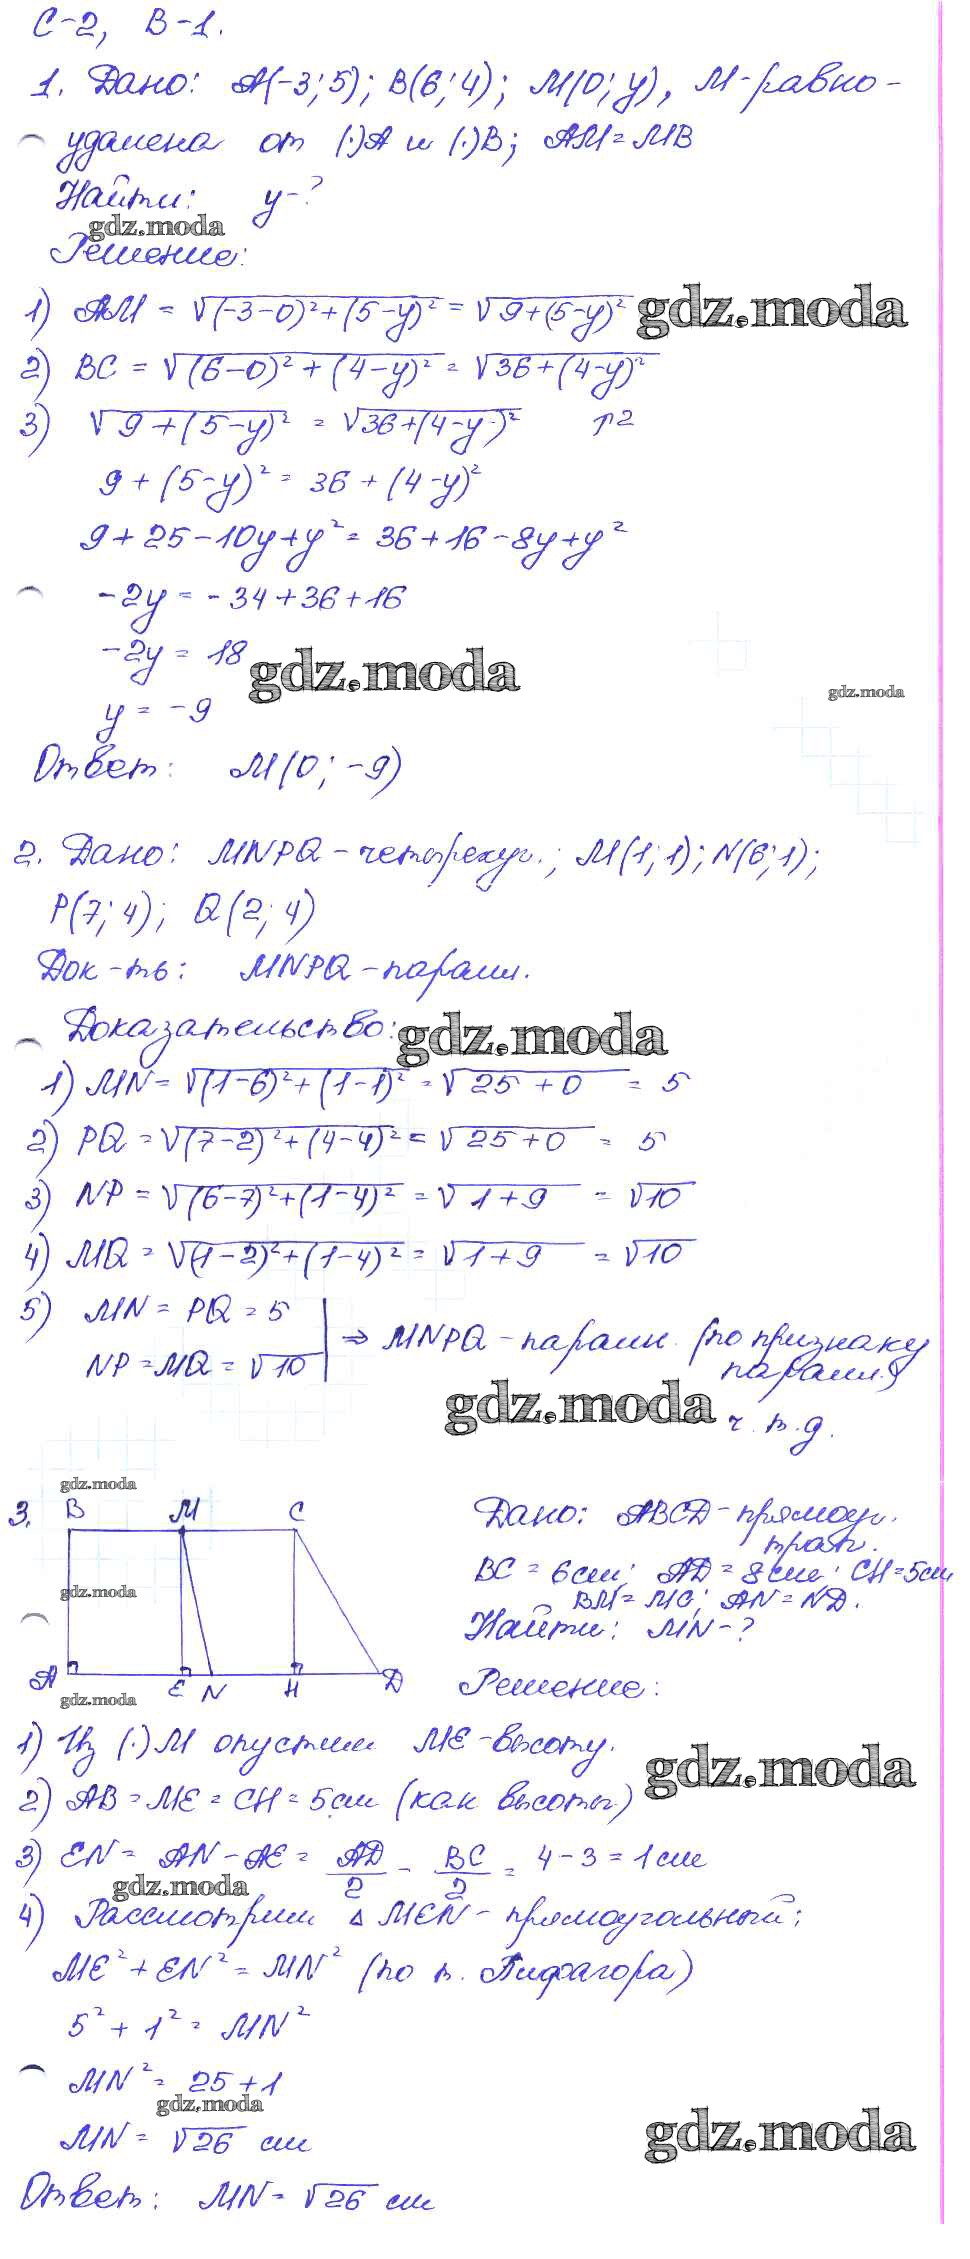 С-2, В-1.
1. Дано: A(-3;5); B(6;4); M(0;y), M-равно-
удалена от (·)A и (·)B; AM=MB
Найти: y-?
gdz.moda
Решение:
1) AM = √(-3-0)²+(5-y)² = √9+(5-y)²
gdz.moda
2) BC = √(6-0)²+(4-y)² = √36+(4-y)²
3) √9+(5-y)² = √36+(4-y)² ↑2
9+(5-y)² = 36+(4-y)²
9+25-10y+y² = 36+16-8y+y²
-2y = -34+36+16
-2y = 18
gdz.moda
gdz.moda
y = -9
Ответ: M(0; -9)
2. Дано: MNPQ-четырехуг.; M(1;1); N(6;1);
P(7;4); Q(2;4)
Док-ть: MNPQ-паралл.
Доказательство:
gdz.moda
1) MN = √(1-6)²+(1-1)² = √25+0 = 5
2) PQ = √(7-2)²+(4-4)² = √25+0 = 5
3) NP = √(6-7)²+(1-4)² = √1+9 = √10
4) MQ = √(1-2)²+(1-4)² = √1+9 = √10
5) MN = PQ = 5
NP = MQ = √10 ⇒ MNPQ-паралл. (по признаку
паралл.)
gdz.moda
ч.т.д.
gdz.moda
3. B M C
Дано: ABCD-прямоуг.
трап.
BC = 6см; AD = 8см; CH=5см
gdz.moda
BM=MC; AN=ND.
Найти: MN-?
A E N H D
gdz.moda
Решение:
1) Из (·)M опустим ME-высоту.
gdz.moda
2) AB=ME=CH=5см (как высоты)
3) EN = AN-AE = AD/2 - BC/2 = 4-3=1см
gdz.moda
4) Рассмотрим △MEN-прямоугольный;
ME²+EN²=MN² (по т. Пифагора)
5²+1²=MN²
MN²=25+1
gdz.moda
gdz.moda
MN = √26 см
Ответ: MN=√26 см